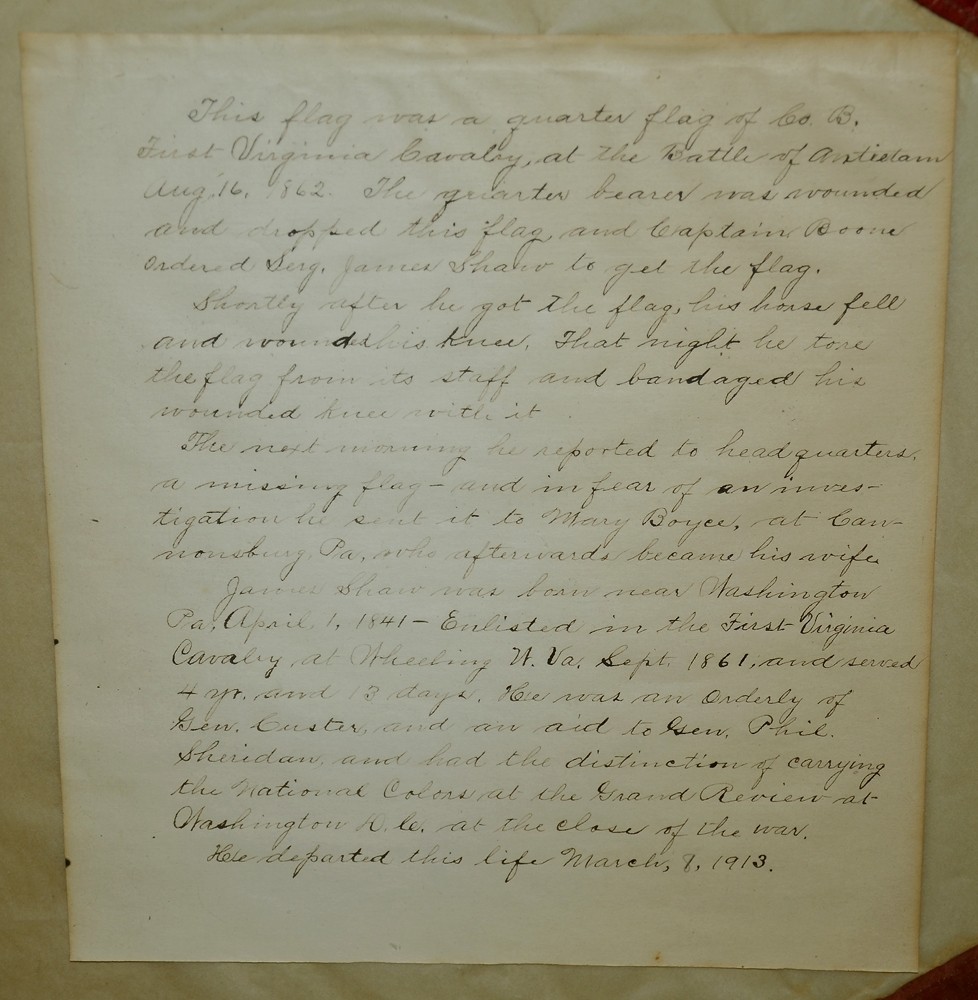 This flag was a quarter flag of Co. B.
First Virginia Cavalry, at the Battle of Antietam
Aug. 16, 1862. The quarter bearer was wounded
and dropped this flag, and Captain Boone
ordered Serg. James Shaw to get the flag.
Shortly after he got the flag, his horse fell
and wounded his knee. That night he tore
the flag from its staff and bandaged his
wounded knee with it.
The next morning he reported to headquarters,
a missing flag – and in fear of an inves-
tigation he sent it to Mary Boyce, at Can-
nonsburg, Pa, who afterwards became his wife
James Shaw was born near Washington
Pa, April 1, 1841 – Enlisted in the First Virginia
Cavalry at Wheeling W. Va. Sept. 1861, and served
4 yr. and 13 days. He was an Orderly of
Gen. Custer, and an aid to Gen. Phil.
Sheridan, and had the distinction of carrying
the National Colors at the Grand Review at
Washington D.C. at the close of the war.
He departed this life March, 8, 1913.